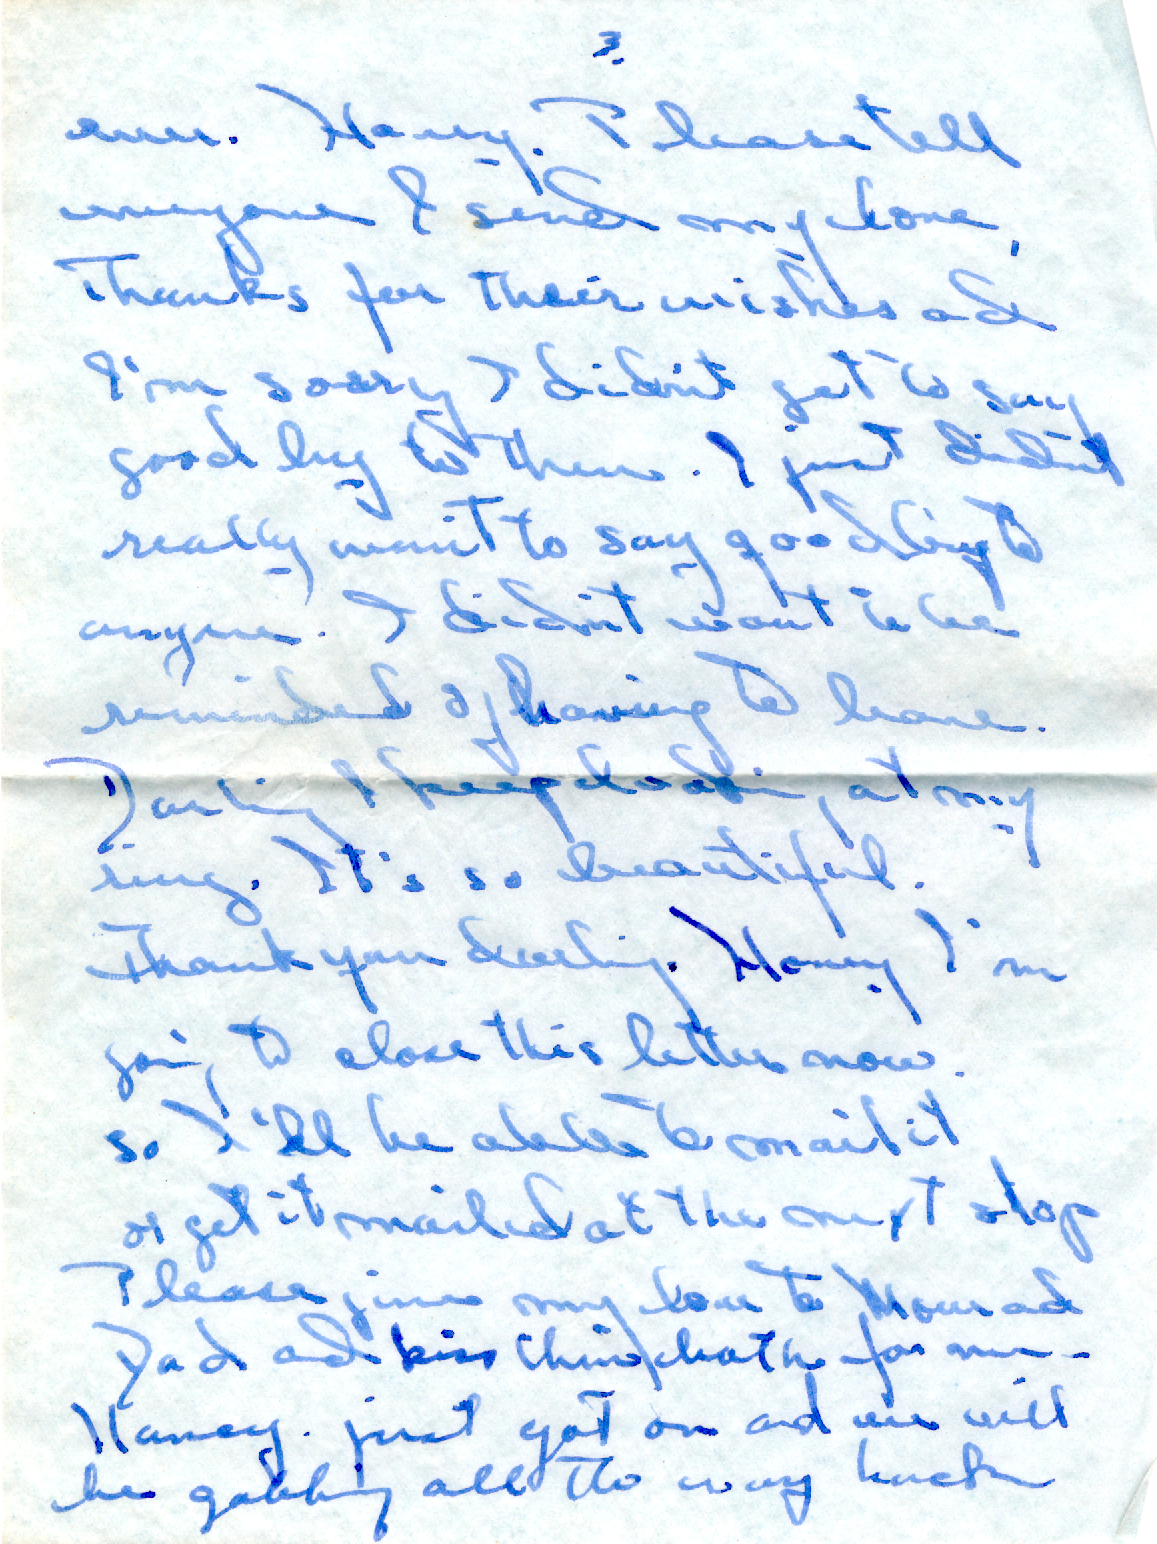 3.
ever. Honey. Please tell
everyone I send my love,
Thanks for their wishes ad
I'm sorry I didn't get to say
good by to them. I just didn't
really want to say good by to
anyone. I didn't want to be
reminded of having to leave.
Darling I keep looking at my
ring. It's so beautiful.
Thank you darling. Honey I'm
going to close this letter now.
so I'll be able to mail it
or get it mailed at the next stop
Please give my love to Mom ad
Dad ad kiss them both for me -
just got on and we will
be gabbing all the way back